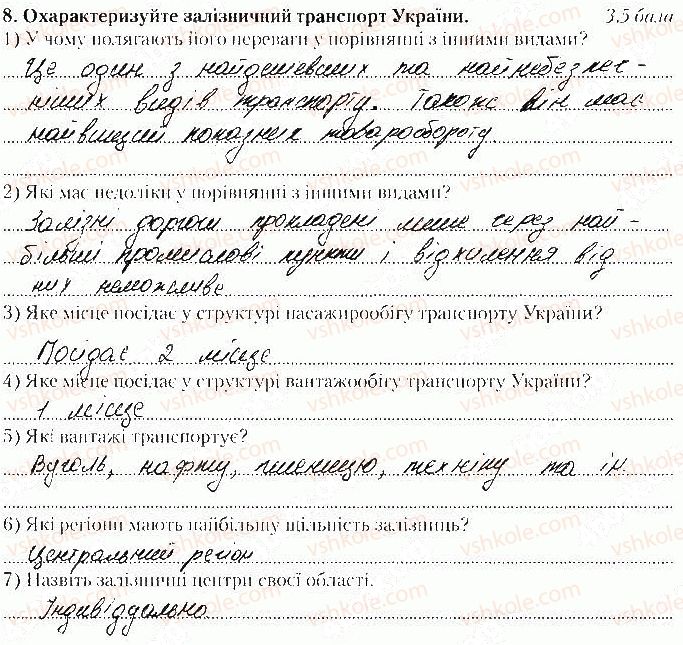 8. Охарактеризуйте залізничний транспорт України. 3,5 бала
1) У чому полягають його переваги у порівнянні з іншими видами?
Це один з найдешевших та найнебезпеч-
ніших видів транспорту. Також він має
найвищий показник товарообороту.
2) Які має недоліки у порівнянні з іншими видами?
Залізні дороги прокладені лише через най-
більші промислові пункти і відхилення від
них неможливе
3) Яке місце посідає у структурі пасажирообігу транспорту України?
Посідає 2 місце
4) Яке місце посідає у структурі вантажообігу транспорту України?
1 місце
5) Які вантажі транспортує?
Вугіль, нафту, пшеницю, техніку та ін
6) Які регіони мають найбільшу щільність залізниць?
Центральний регіон
7) Назвіть залізничні центри своєї області.
Індивідуально
vshkole.com